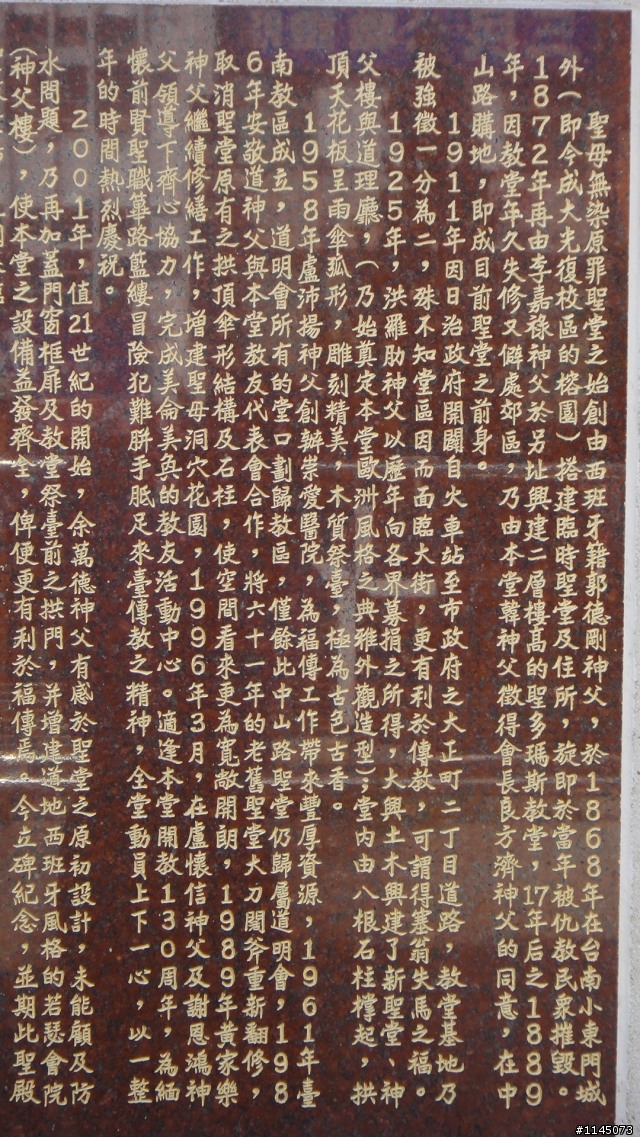 聖母無染原罪聖堂之始創由西班牙籍郭德剛神父，於1868年在台南小東門城
外（即今成大光復校區的榕園）搭建臨時聖堂及住所，旋即於當年被仇教民眾摧毀。
1872年再由李嘉祿神父於另址興建二層樓高的聖多瑪斯教堂，17年后之1889
年，因教堂年久失修又僻處郊區，乃由本堂韓神父徵得會長良方濟神父的同意，在中
山路購地，即成目前聖堂之前身。
1911年因日治政府開闢自火車站至市政府之大正町二丁目道路，教堂基地乃
被強徵一分為二，殊不知堂區因而面臨大街，更有利於傳教，可謂得塞翁失馬之福。
1925年，洪羅肋神父以歷年向各界募捐之所得，大興土木興建了新聖堂、神
父樓與道理廳，（乃始奠定本堂歐洲風格之典雅外觀造型）；堂內由八根石柱撐起，拱
頂天花板呈雨傘弧形，雕刻精美，木質祭臺，極為古色古香。
1958年盧沛揚神父創辦崇愛醫院，為福傳工作帶來豐厚資源，1961年臺
南教區成立，道明會所有的堂口劃歸教區，僅餘此中山路聖堂仍歸屬道明會，198
6年安敬道神父與本堂教友代表會合作，將六十一年的老舊聖堂大刀闊斧重新翻修，
取消聖堂原有之拱頂傘形結構及石柱，使空間看來更為寬敞開朗，1989年黃家樂
神父繼續修繕工作，增建聖母洞穴花園，1996年3月，在盧懷信神父及謝恩鴻神
父領導下齊心協力，完成美侖美奐的教友活動中心。適逢本堂開教130周年，為緬
懷前賢聖職篳路籃縷冒險犯難胼手胝足來臺傳教之精神，全堂動員上下一心，以一整
年的時間熱烈慶祝。
2001年，值21世紀的開始，余萬德神父有感於聖堂之原初設計，未能顧及防
水問題，乃再加蓋門窗框扉及教堂祭臺前之拱門，并增建道地西班牙風格的若瑟會院
（神父樓），使本堂之設備益發齊全，俾便更有利於福傳焉。今立碑紀念，並期此聖殿
#1145073